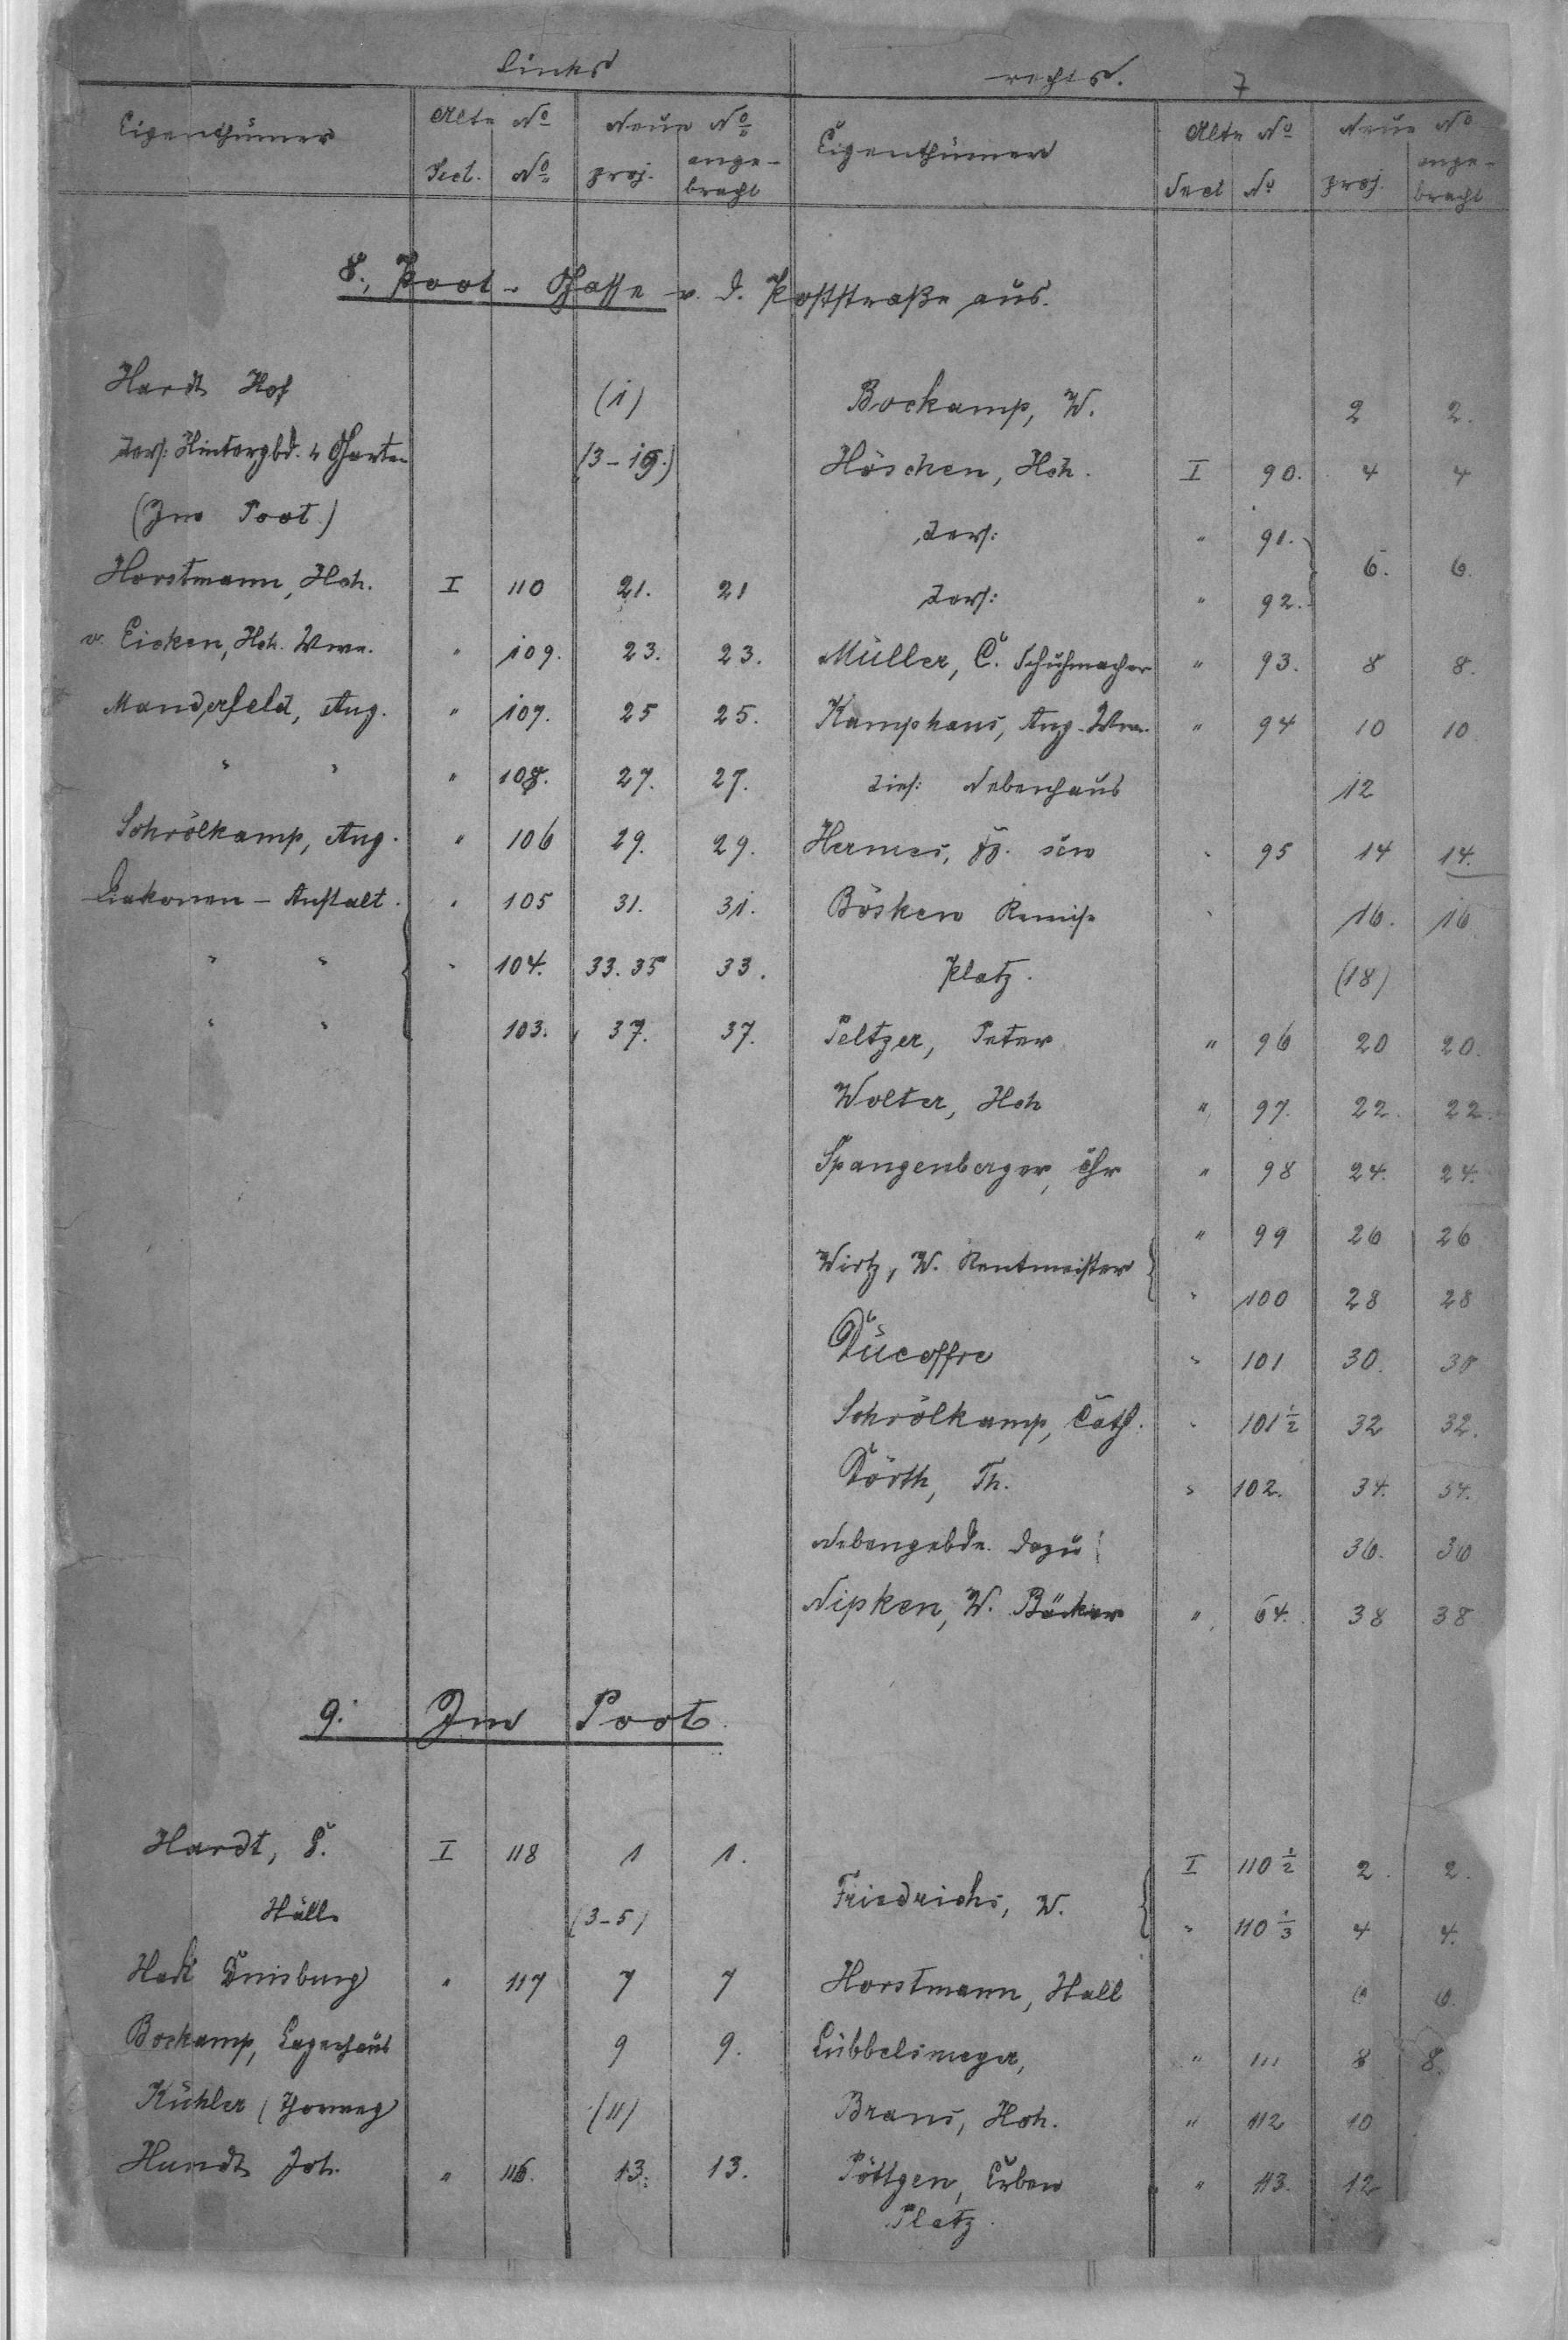 links rechts. 7
Eigenthümer Alte No Neue No Eigenthümer Alte No Neue No
Sect. No proj. ange-bracht Sect No proj. ange-bracht
8., Poot-Gasse v. d. Poststraße aus.
Hardt Hof (1) Bockamp, W. 2 2.
Ders: Hintergbd. u Garten (3-19.) Höschen, Hch. I 90. 4 4
(Im Poot.) Ders: " 91. 6. 6.
Horstmann, Hch. I 110 21. 21 Ders: " 92.
v. Eicken, Hch. Wwe. " 109. 23. 23. Müller, C. Schuhmacher " 93. 8 8.
Manderfeld, Aug. " 107. 25 25. Kamphaus, Aug. Wwe. " 94 10 10.
" " " 108. 27. 27. Dies: Nebenhaus 12
Schrölkamp, Aug. " 106 29. 29. Hermes, sen " 95 14 14.
Diakonen-Anstalt. " 105 31. 31. Bösken Remise " 16. 16
" " " 104. 33. 35 33. Platz. (18)
" " 103. 37. 37. Peltzer, Peter " 96 20 20.
Wolter, Hch " 97. 22. 22.
Spangenberger, Chr " 98 24. 24.
" 99 26 26
Wirtz, W. Rentmeister " 100 28 28
Dücoffre " 101 30. 30
Schrölkamp, Cath. " 101 1/2 32 32.
Dörth, Th. " 102. 34. 34.
Nebengebde. dazu 36. 36
Nipken, W. Bäcker " 64. 38 38
9. Im Poot.
Hardt, I 118 1 1. I 110 1/2 2. 2.
Ställe (3-5) Friedrichs, W. " 110 1/3 4 4.
Duisburg " 117 7 7 Horstmann, Stall 6 6.
Bockamp, Lagerhaus 9 9. Lübbelsmeyer, " 111 8 8.
Kühler (Thorweg) (11) Brans, Hch. " 112 10
Hundt Joh. " 116. 13. 13. Pöttgen, Erben " 113. 12
Platz.